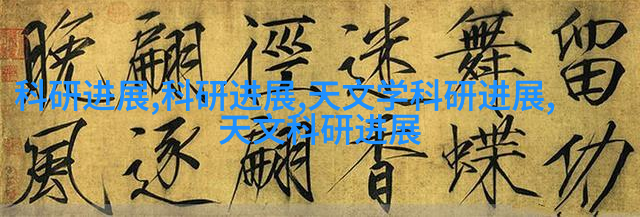 科研进展,科研进展,天文学科研进展,
天文科研进展
留功
舞蝶
迷香
徑翩
翩逐
晚風